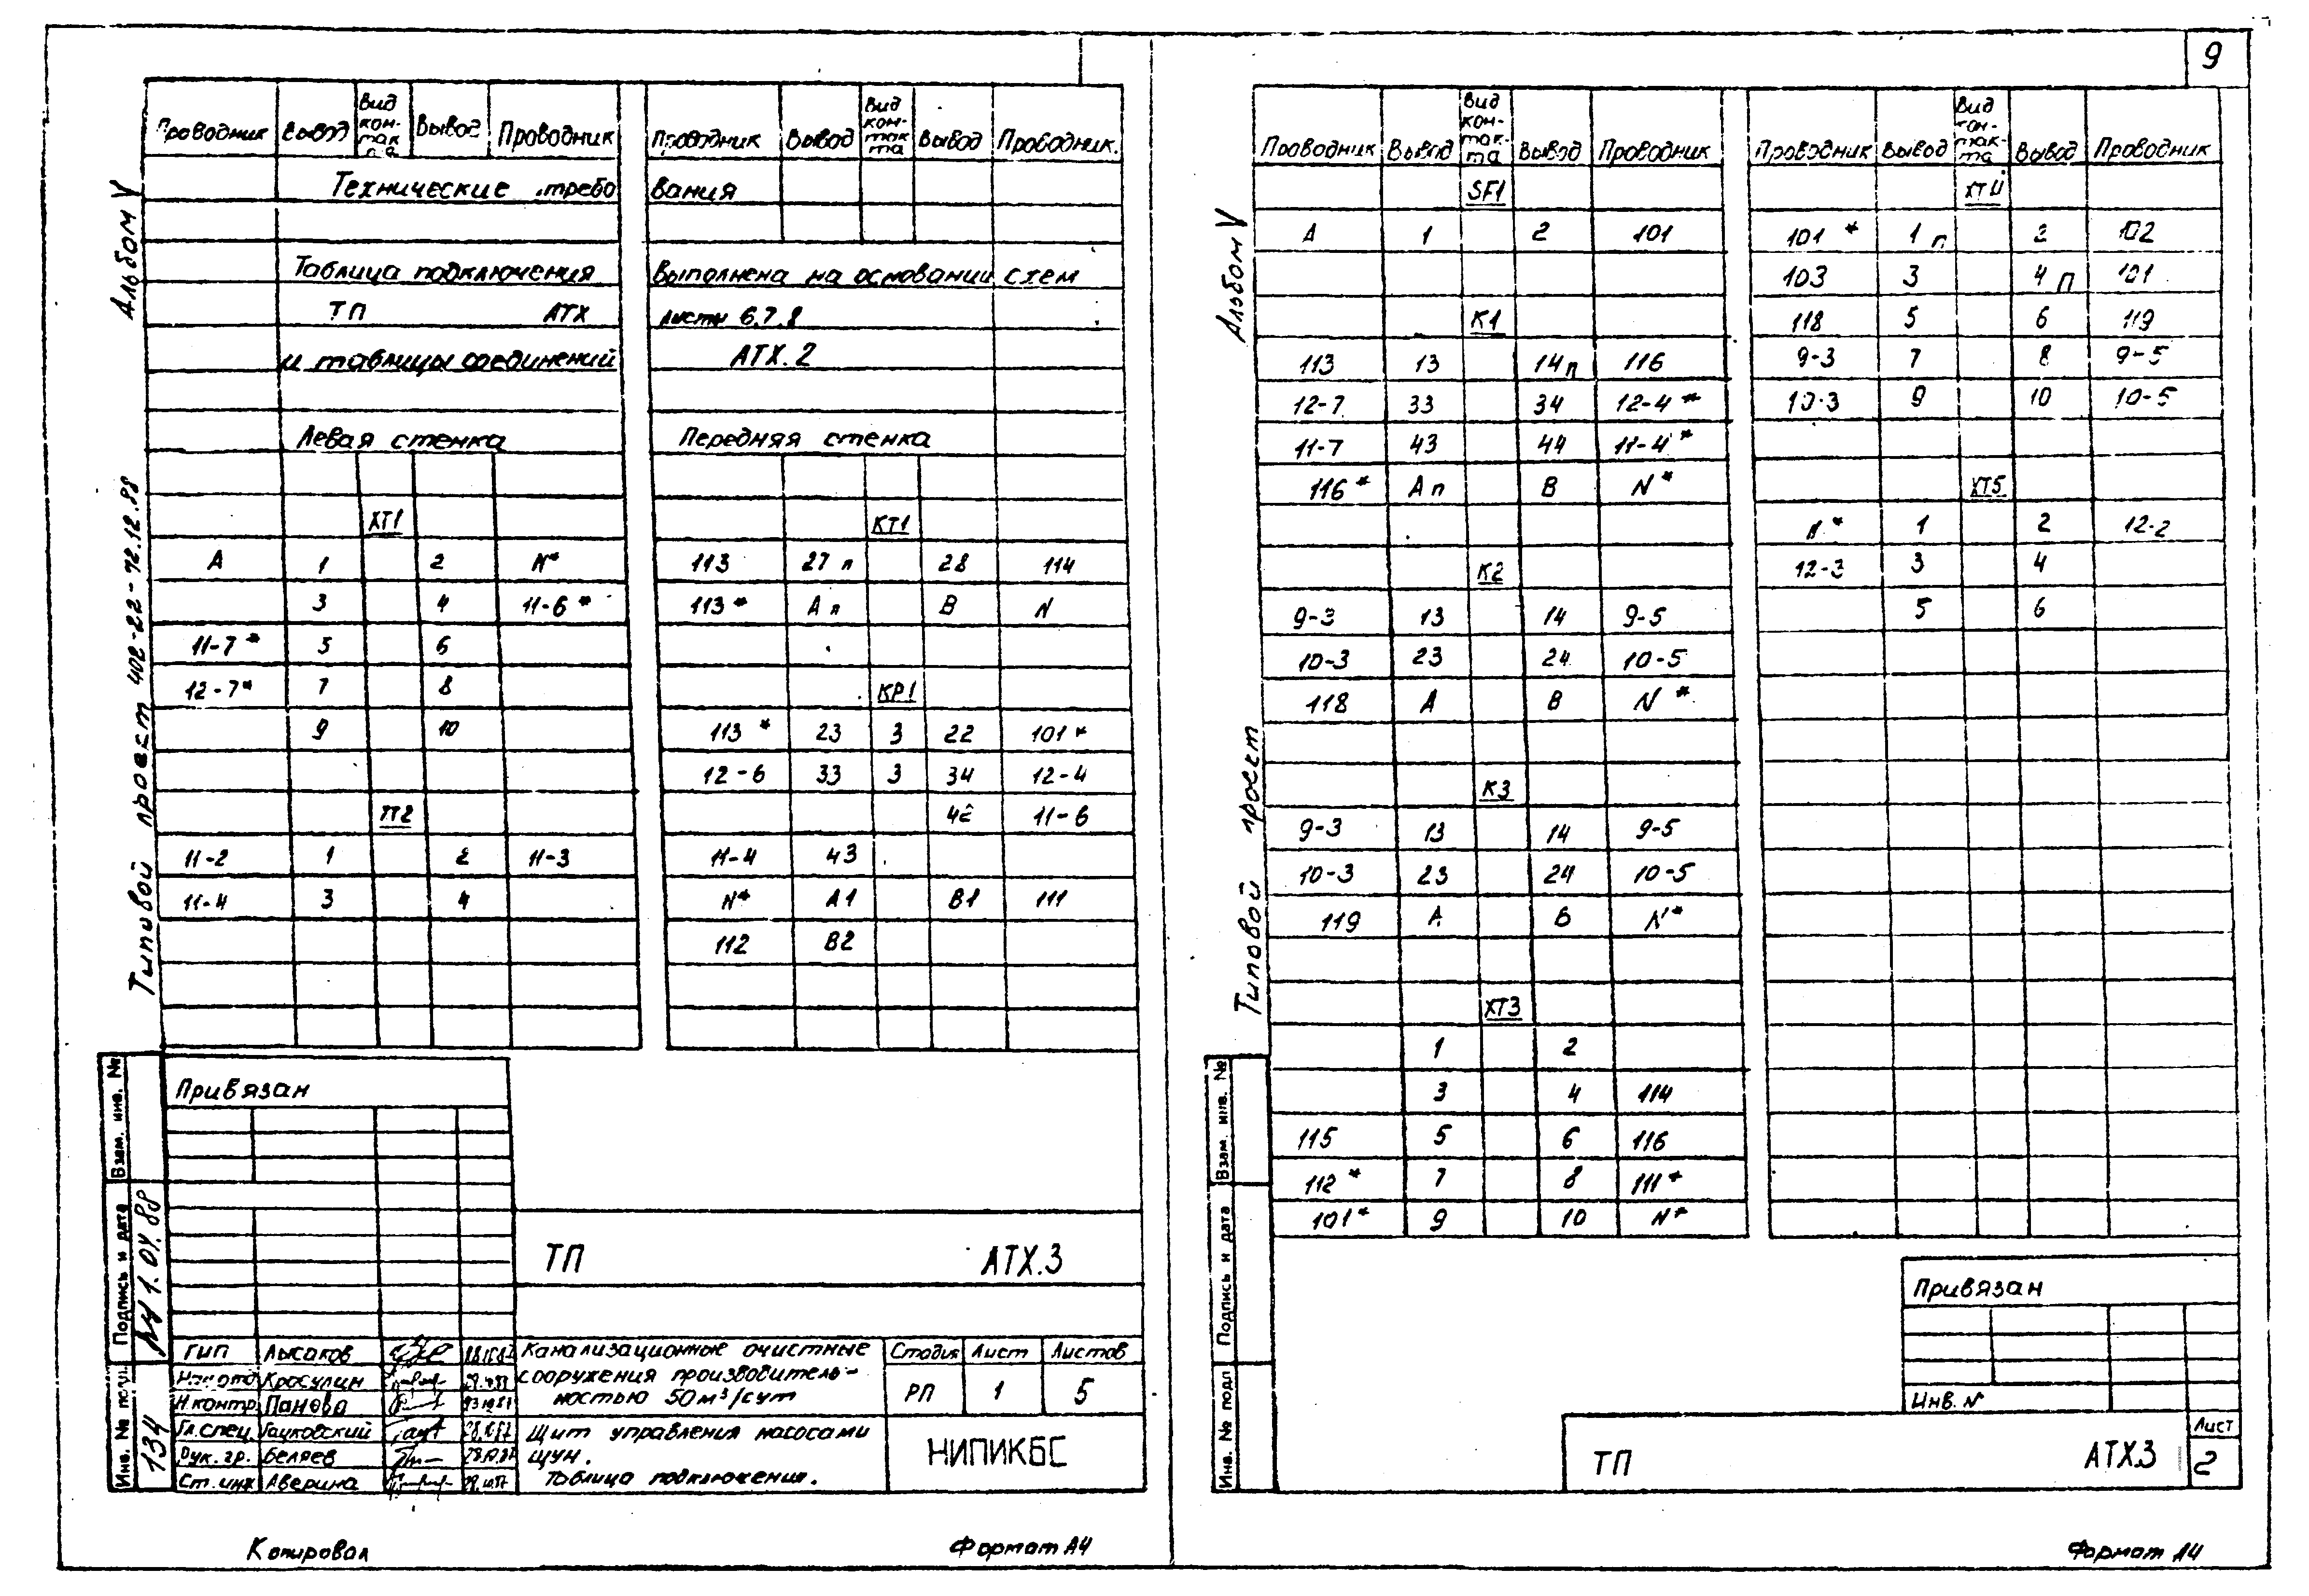 9
Альбом V
Типовой проект 402-22-72.12.88
Проводник Вывод Вид контакта Вывод Проводник
Технические требования
Таблица подключения выполнена на основании схем
ТП АТХ листы 6.7.8
и таблицы соединений АТХ.2
Левая стенка
ХТ1
А 1 2 N*
3 4 11-6*
11-7* 5 6
12-7* 7 8
9 10
11-2 1 2 11-3
11-4 3 4
Проводник Вывод Вид контакта Вывод Проводник.
Передняя стенка
КТ1
113 27 п 28 114
113* А п В N
КР1
113* 23 3 22 101*
12-6 33 3 34 12-4
11-6
11-4 43
N* А1 В1 111
112 В2
Привязан
ТП АТХ.3
ГИП Лысаков
Нач.отд Красулин
Н.контр. Панова
Гл.спец. Гауковский
Рук. гр. Беляев
Ст. инж Аверина
Канализационные очистные
сооружения производитель-
ностью 50 м³/сут
Стадия Лист Листов
РП 1 5
Щит управления насосами
ЩУН.
Таблица подключения.
НИПИКБС
Взам. инв. №
Подпись и дата
Инв. № подл.
134
Копировал
Формат А4
Альбом V
Типовой проект
Проводник Вывод Вид контакта Вывод Проводник
SF1
А 1 2 101
К1
113 13 14 п 116
12-7 33 34 12-4*
11-7 43 44 11-4*
116* А п В N*
К2
9-3 13 14 9-5
10-3 23 24 10-5
118 А В N*
К3
9-3 13 14 9-5
10-3 23 24 10-5
119 А В N*
ХТ3
1 2
3 4 114
115 5 6 116
112* 7 8 111*
101* 9 10 N*
Проводник Вывод Вид контакта Вывод Проводник
101* 1 п 2 102
103 3 4 п 101
118 5 6 119
9-3 7 8 9-5
10-3 9 10 10-5
ХТ5
N* 1 2 12-2
12-3 3 4
5 6
Привязан
Инв. №
Взам. инв. №
Подпись и дата
Инв. № подл
ТП АТХ.3
Лист
2
Формат А4